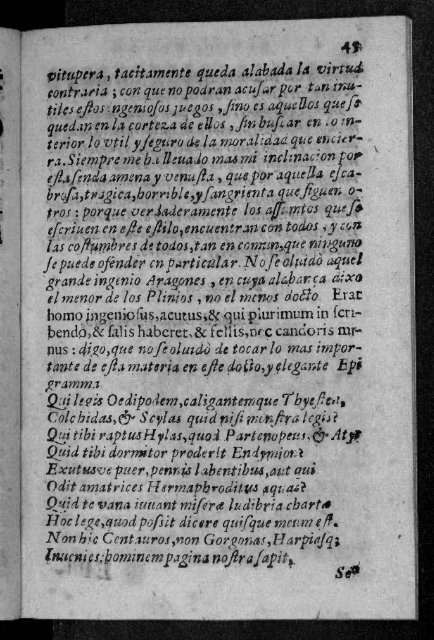 45
vitupera, tacitamente queda alabada la virtud
contraria; con que no podran acusar por tan inu-
tiles estos ingeniosos juegos, sino es aquellos que se
quedan en la corteza de ellos, sin buscar en lo in-
terior lo util y seguro de la moralidad que encier-
ra. Siempre me ha llevado mas mi inclinacion por
esta senda amena y venusta, que por aquella esca-
brosa, tragica, horrible, y sangrienta que siguen o-
tros: porque verdaderamente los assumtos que se
escriuen en este estilo, encuentran con todos, y con
las costumbres de todos, tan en comun, que ninguno
se puede ofender en particular. No se oluidò aquel
grande ingenio Aragones, en cuya alabanca dixo
el menor de los Plinios, no el menos docto. Erat
homo ingeniosus, acutus, & qui plurimum in scri-
bendo, & salis haberet, & fellis, nec candoris mi-
nus: digo, que no se oluidò de tocar lo mas impor-
tante de esta materia en este docto, y elegante Epi
gramma
Qui legis Oedipodem, caligantemque Thyesten,
Colchidas, & Scylas quid nisi monstra legis?
Qui tibi raptus Hylas, quod Partenopeus, & Atys
Quid tibi dormitor proderit Endymion?
Exutusve puer, pennis labentibus, aut qui
Odit amatrices Hermaphroditus aquas?
Quid te vana iuuant miseræ ludibria chartæ
Hoc lege, quod possit dicere quisque meum est.
Non hic Centauros, non Gorgonas, Harpiasq;
Inuenies: hominem pagina nostra sapit,
Se